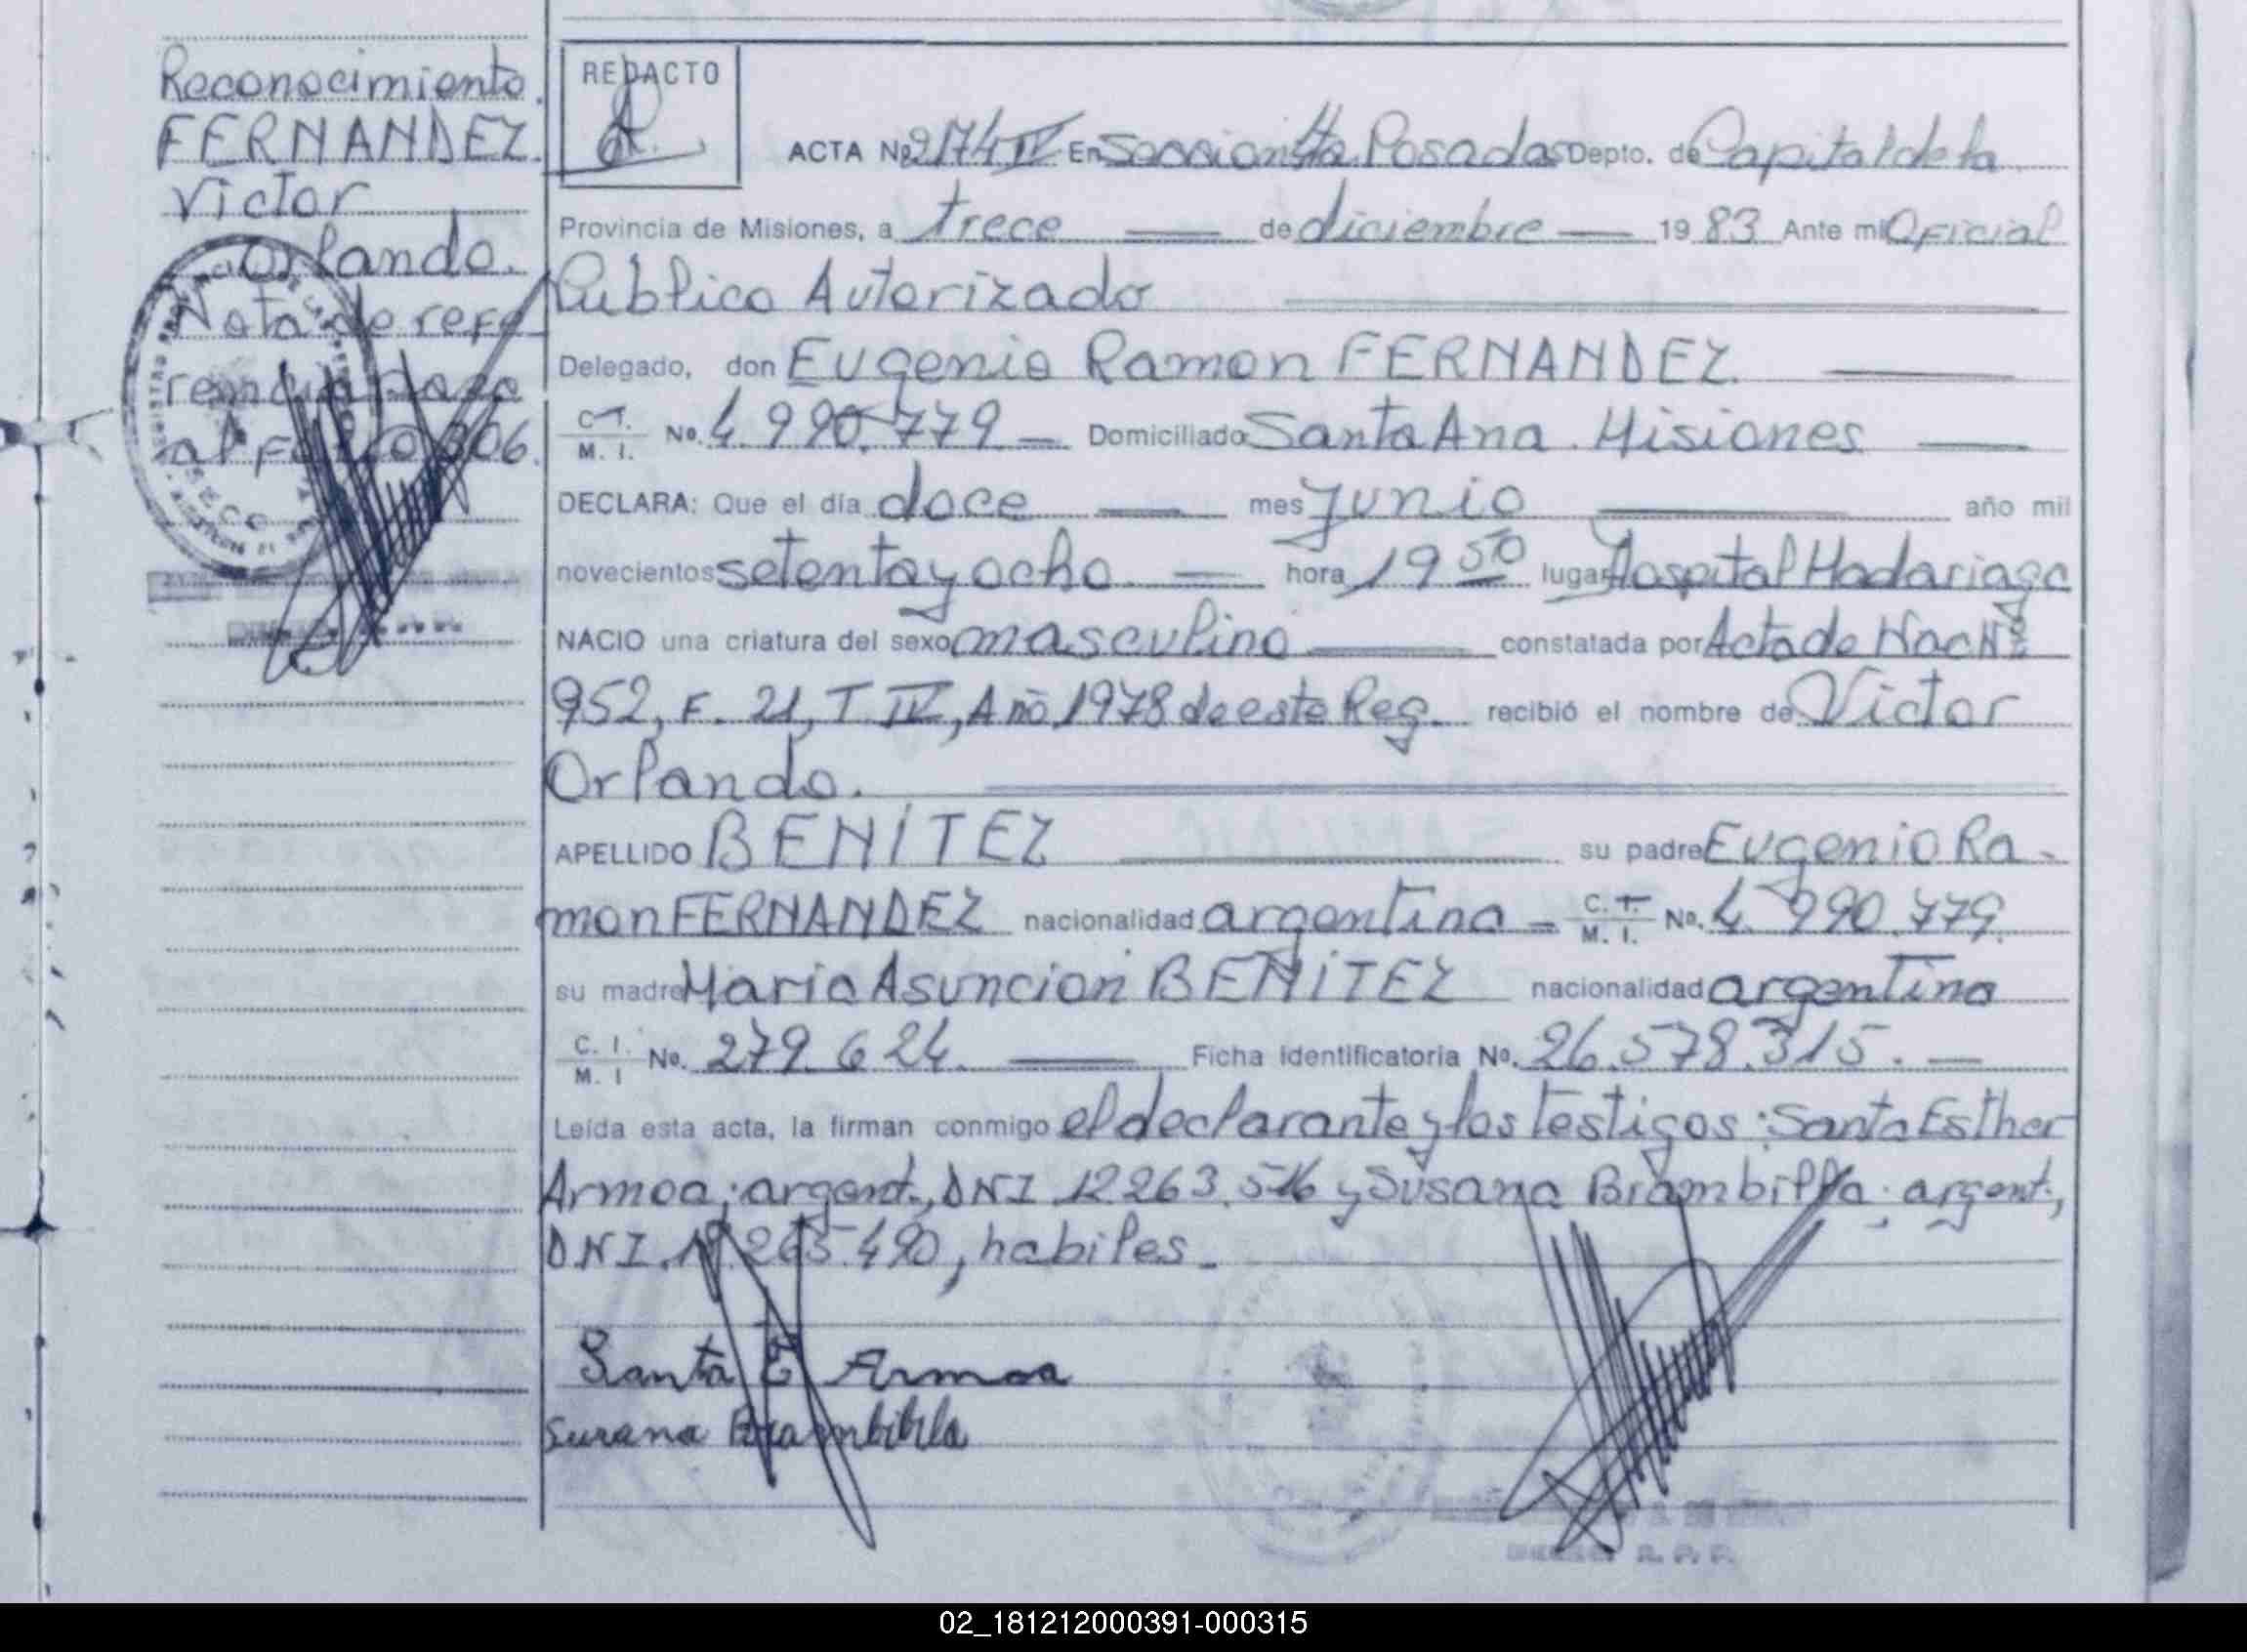 Reconocimiento.
FERNANDEZ.
Victor
Orlando.
Nota de refe
rencia Paso
al Folio 306.
REDACTO
ACTA Nº 2174 IV En Seccion 4ta. Posadas Depto. de Capital de la
Provincia de Misiones, a trece de diciembre 1983 Ante mi Oficial
Publico Autorizado
Delegado, don Eugenio Ramon FERNANDEZ.
C.I. M. I. Nº. 4.990.779 Domiciliado Santa Ana. Misiones
DECLARA: Que el día doce mes junio año mil
novecientos setenta y ocho. hora 19 50 lugar Hospital Madariaga
NACIO una criatura del sexo masculino constatada por Acta de Nac Nº
952, F. 21, T. IV, Año 1978 de este Reg. recibió el nombre de Victor
Orlando.
APELLIDO BENÍTEZ su padre Eugenio Ra-
mon FERNANDEZ nacionalidad argentina C.I. M. I. Nº. 4.990.779.
su madre Maria Asuncion BENÍTEZ nacionalidad argentina
C. I. M. I Nº. 279.624. Ficha Identificatoria Nº. 26.578.315.
Leída esta acta, la firman conmigo el declarante y los testigos: Santa Esther
Armoa; argent., DNI 12.263.516 y Susana Brambilla; argent.,
DNI. 265.490, habiles.
Santa E Armoa
Susana Brambilla
02_181212000391-000315